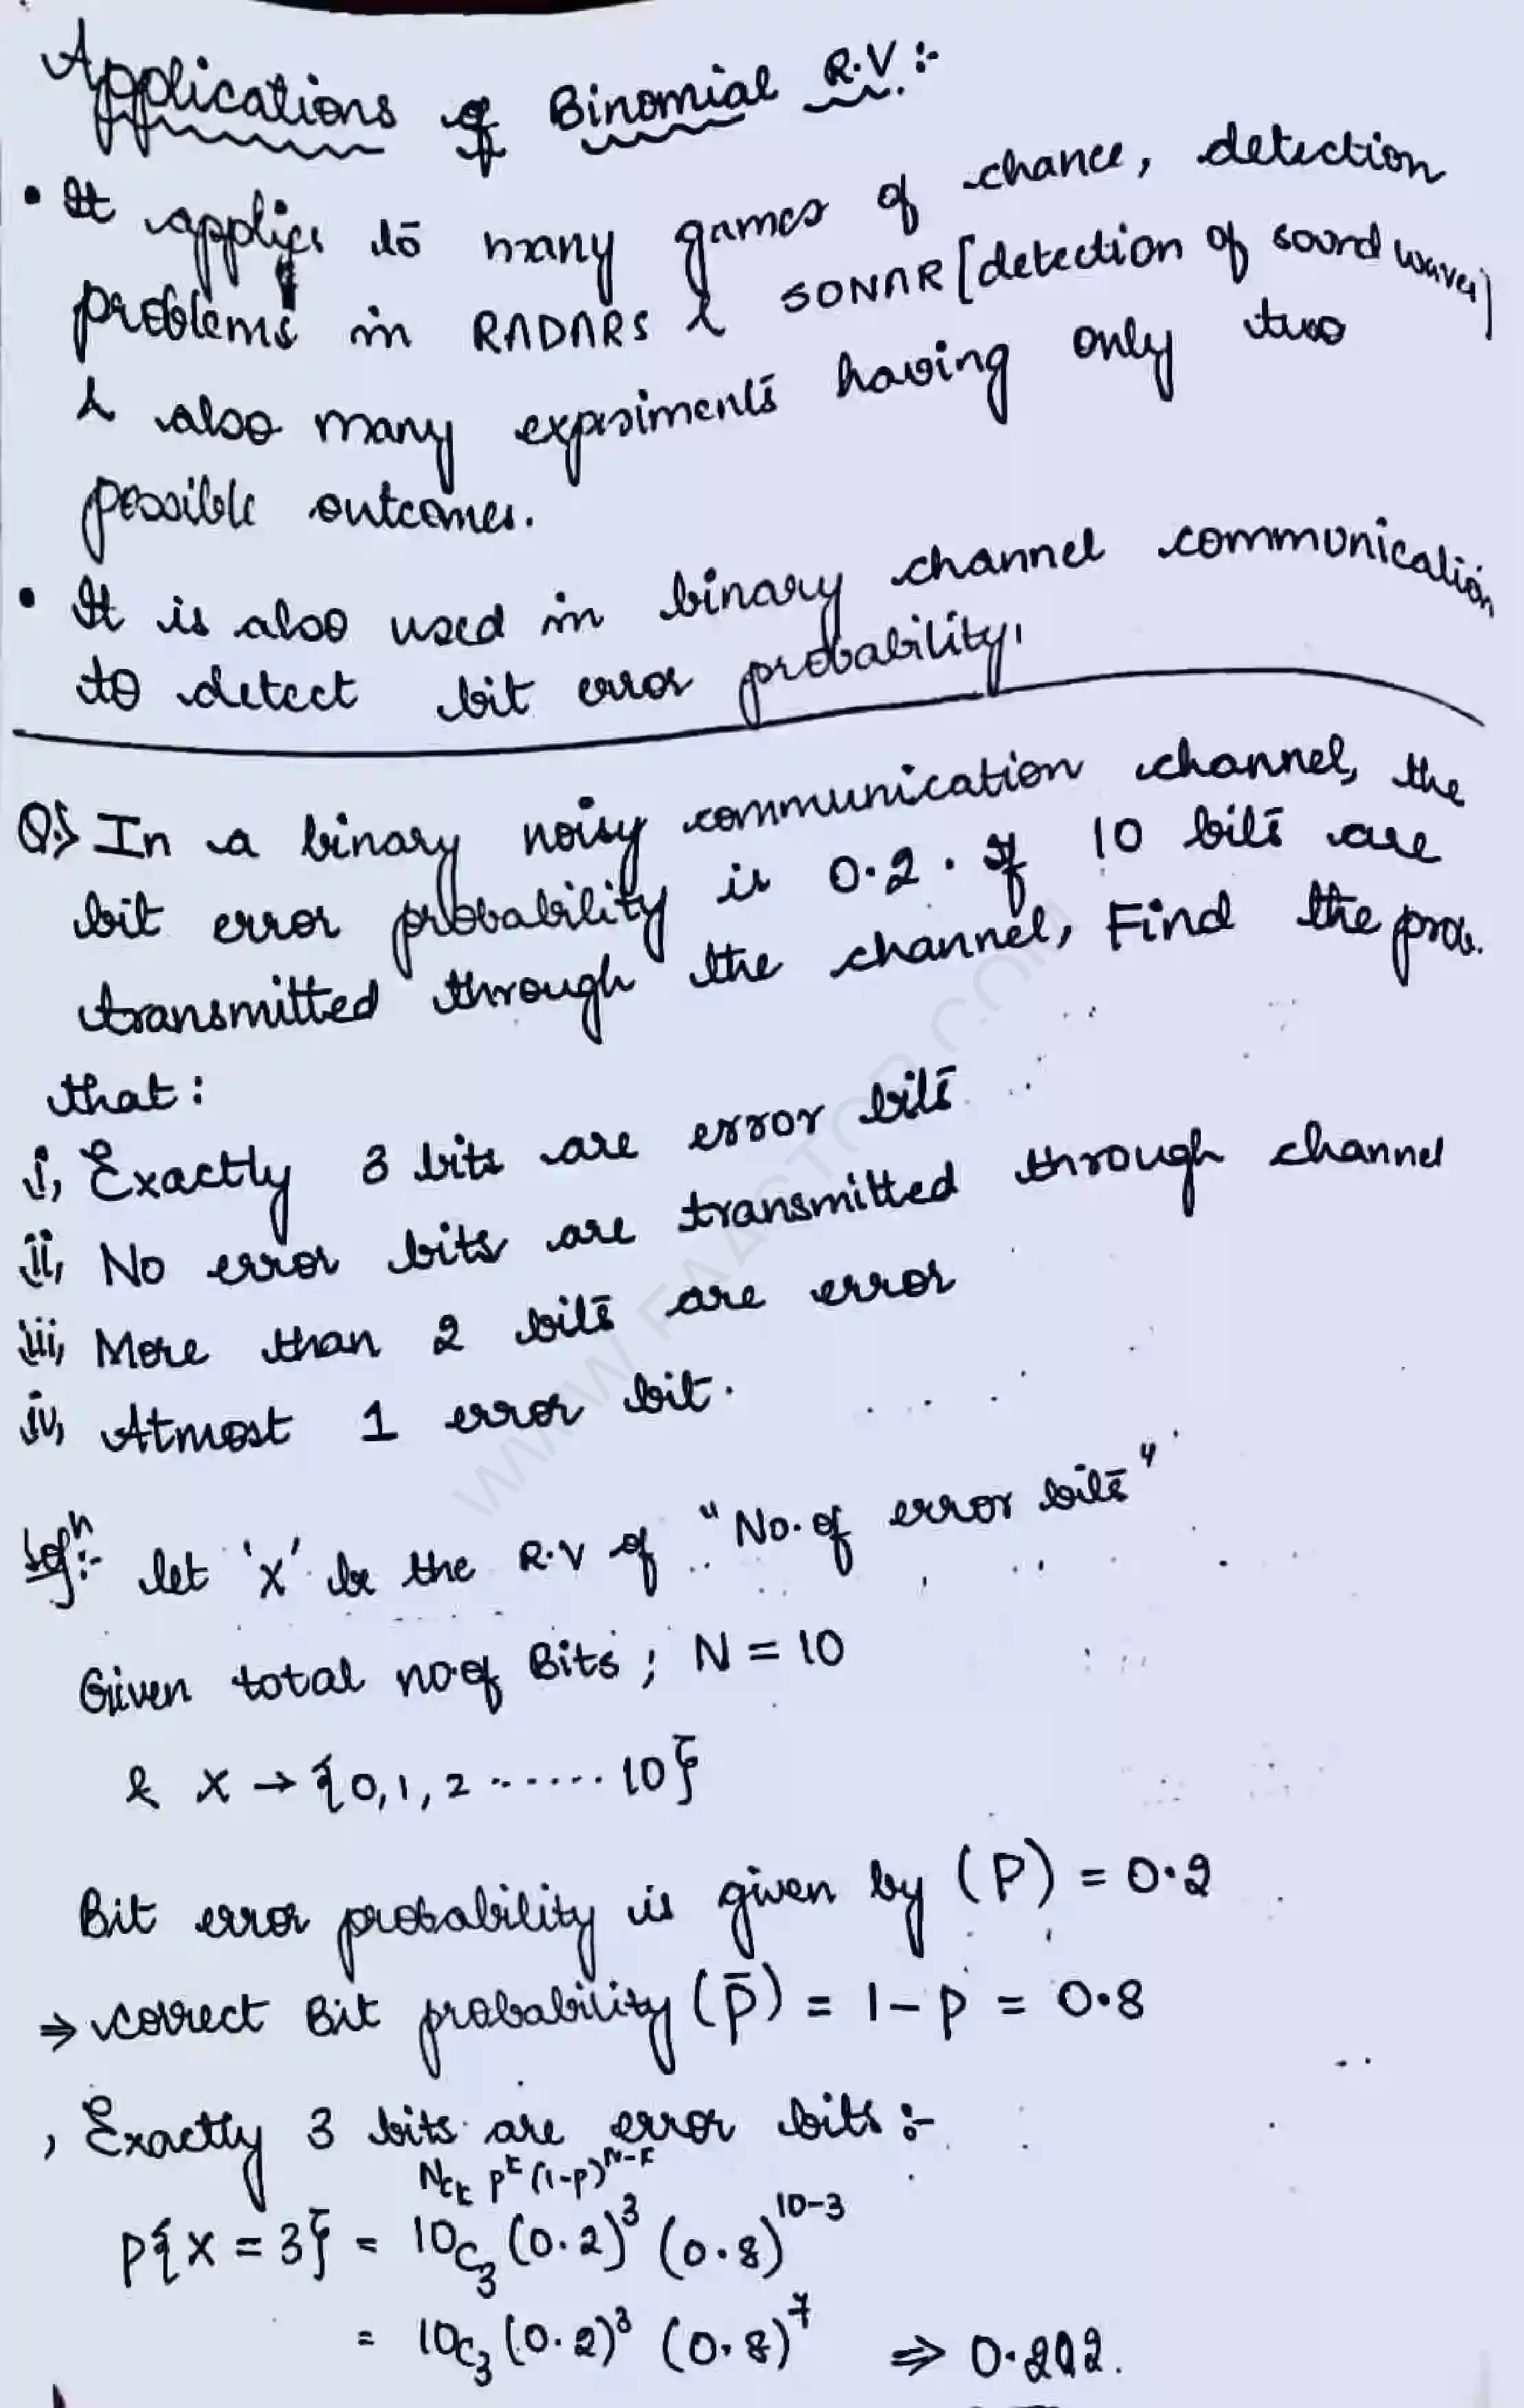 Applications of Binomial R.V :-
• It applies to many games of chance, detection
problems in RADARS & SONAR [detection of sound waves]
& also many expriments having only two
possible outcomes.
• It is also used in binary channel communication
to detect bit error probability.
Q:) In a binary noisy communication channel, the
bit error probability is 0.2. If 10 bits are
transmitted through the channel, Find the prob.
that:
i, Exactly 3 bits are error bits
ii, No error bits are transmitted through channel
iii, More than 2 bits are error
iv, Atmost 1 error bit.
Solⁿ:- let 'X' be the R.V of "No. of error bits"
Given total no. of Bits ; N = 10
& X → {0, 1, 2 ...... 10}
Bit error probability is given by (P) = 0.2
⇒ correct Bit probability (p̄) = 1 - p = 0.8
, Exactly 3 bits are error bits :-
N_C_k p^k (1-p)^N-k
P{X = 3} = 10_C_3 (0.2)^3 (0.8)^10-3
= 10_C_3 (0.2)^3 (0.8)^7 ⇒ 0.202.
WWW.FAASTOP.COM